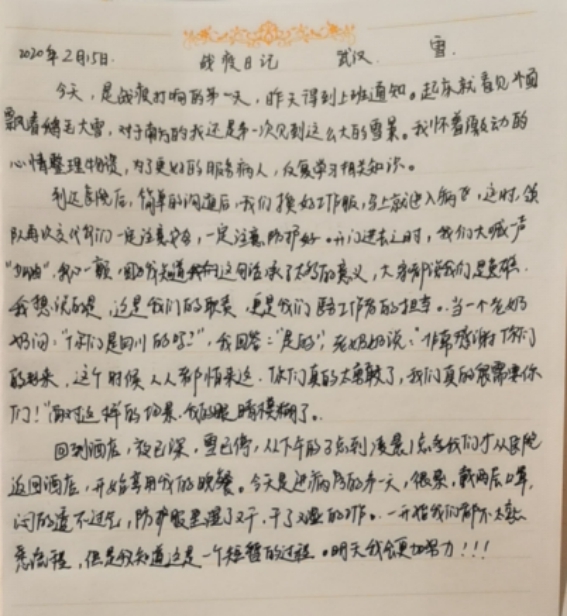 2020年2月15日. 战疫日记 武汉. 雪.
今天,是战疫打响的第一天,昨天得到上班通知。起床就看见外面
飘着鹅毛大雪,对于南方的我还是第一次见到这么大的雪景。我怀着激动的
心情整理物资,为了更好的服务病人,反复学习相关知识。
到达医院后,简单的沟通后,我们换好工作服,马上就进入病区,这时,领
队再次交代我们一定注意安全,一定注意防护好。开门进去之时,我们大喊一声
“加油”,我心一颤,因为我知道我们这句话承了太多的意义,大家都说我们是英雄.
我想说的是,这是我们的职责,更是我们医工作者的担当。当一个老奶
奶问:“你们是四川的吗?”,我回答:“是的”,老奶奶说:“非常感谢你们
的到来,这个时候人人都怕来这.你们真的太勇敢了,我们真的很需要你
们!”面对这样的场景.我的眼睛模糊了。
回到酒店,夜已深,雪已停,从下午的3点到凌晨1点多我们才从医院
返回酒店,开始享用我的晚餐。今天是进病房的第一天,很累,戴两层口罩,
闷的透不过气,防护服里湿了又干,干了又湿的工作。一开始我们都不太熟
悉流程,但是我知道这是一个短暂的过程。明天我会更加努力!!!